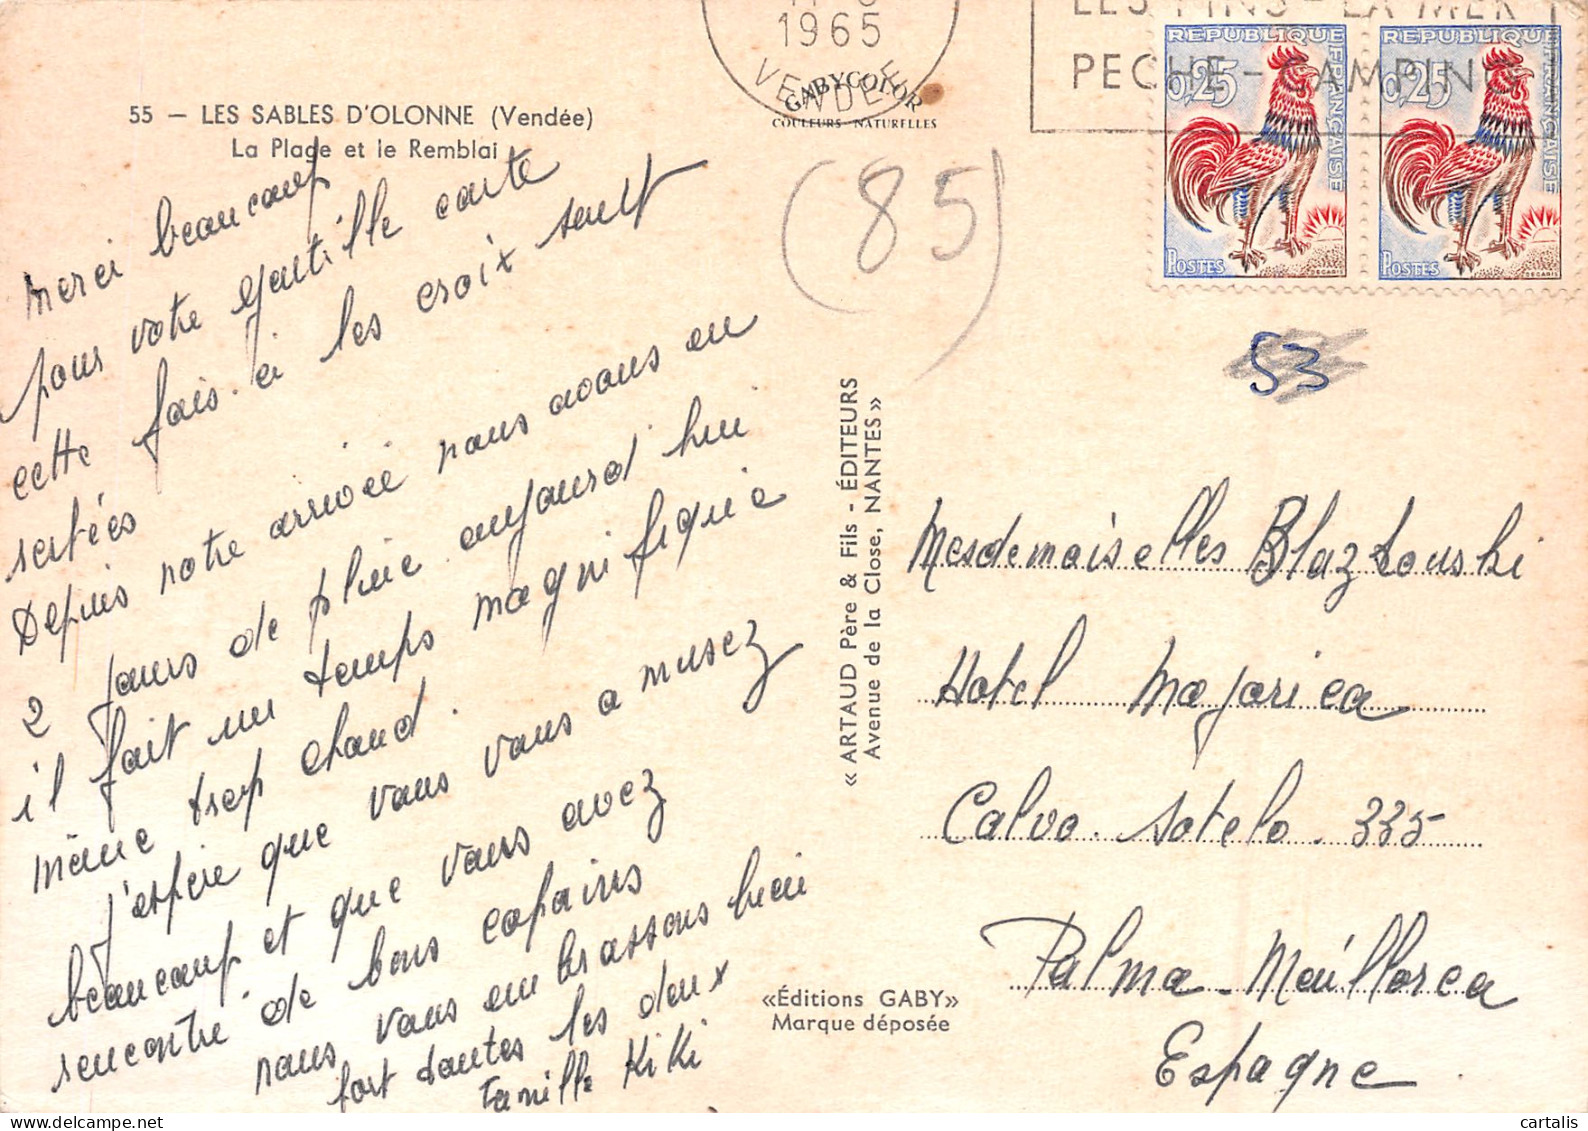 55 — LES SABLES D'OLONNE (Vendée)
La Plage et le Remblai
Merci beaucoup
pour votre gentille carte
cette fois-ci les croix sont
restées
Depuis notre arrivée nous avons eu
2 jours de pluie aujourd'hui
il fait un temps magnifique
même trop chaud.
j'espère que vous vous amusez
beaucoup et que vous avez
rencontré de bons copains
nous vous embrassons bien
fort toutes les deux
Famille KiKi
1965
VENDEE
GABYCOLOR
COULEURS NATURELLES
LES PINS - LA MER
PECHE - CAMPING
REPUBLIQUE FRANÇAISE
0,25
POSTES
DECARIS
REPUBLIQUE FRANÇAISE
0,25
POSTES
DECARIS
(85)
53
« ARTAUD Père & Fils - ÉDITEURS
Avenue de la Close, NANTES »
«Éditions GABY»
Marque déposée
Mesdemoiselles Blazkouski
Hotel Majorica
Calvo. Sotelo. 335
Palma - Maillorca
Espagne
cartalis